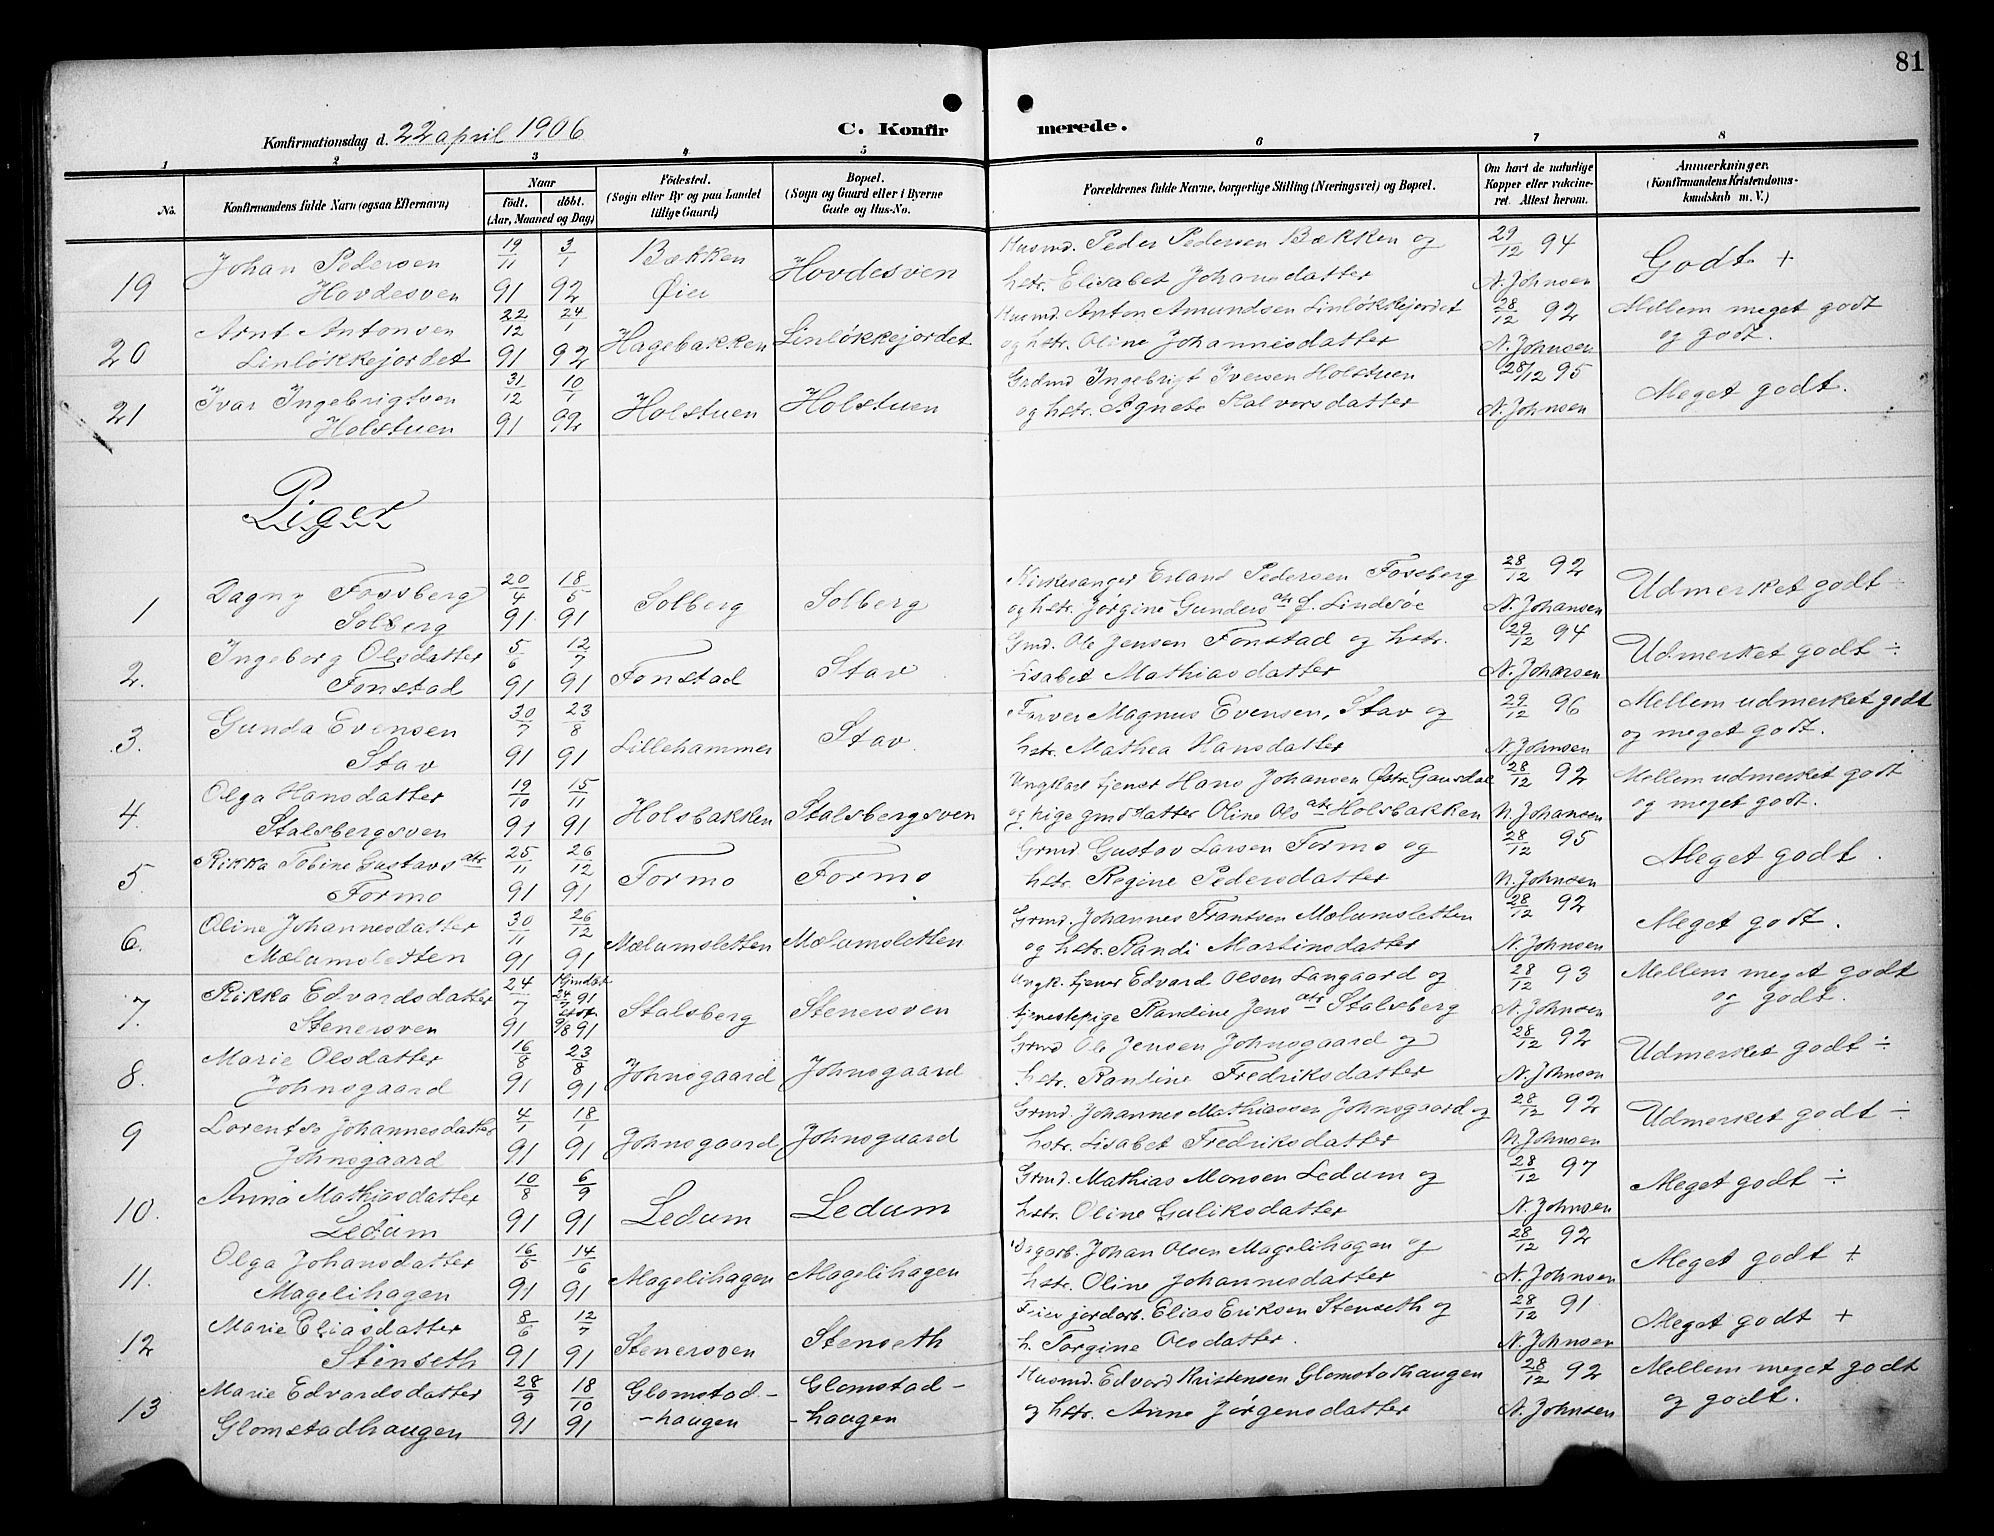 81
Konfirmationsdag d. 22 april 1906
C. Konfirmerede.
1 2 3 4 5 6 7 8
No.
Konfirmandens fulde Navn (ogsaa Efternavn)
Naar
født. døbt.
(Aar, Maaned og Dag)
Fødested.
(Sogn eller By og paa Landet
tillige Gaard)
Bopæl.
(Sogn og Gaard eller i Byerne
Gade og Hus-No.
Forældrenes fulde Navne, borgerlige Stilling (Næringsvei) og Bopæl.
Om havt de naturlige
Kopper eller vakcine-
ret. Attest herom.
Anmærkninger.
(Konfirmandens Kristendoms-
kundskab m. V.)
19 Johan Pedersen
Hovdesven
19/11 91
3/1 92
Bækken
Øier
Hovdesven
Husmd. Peder Pedersen Bækken og
hstr. Elisabet Johansdatter
29/12 94
N. Johnsen
Godt +
20 Arnt Antonsen
Linløkkejordet
22/12 91
24/1 92
Hagebakken
Linløkkejordet
Husmd. Anton Amundsen Linløkkejordet
og hstr. Oline Johannesdatter
28/12 92
N. Johnsen
Mellem meget godt
og godt.
21 Ivar Ingebrigtsen
Holstuen
31/12 91
10/1 92
Holstuen
Holstuen
Grdmd Ingebrigt Iversen Holstuen
og hstr. Agnete Halvorsdatter
28/12 95
N. Johnsen
Meget godt.
Piger
1 Dagny Fossberg
Solberg
20/4 91
18/5 91
Solberg
Solberg
Kirkesanger Erland Pedersen Fossberg
og hstr. Jørgine Gundersdtr f. Lindsøe
28/12 92
N. Johansen
Udmerket godt ÷
2. Ingeborg Olsdatter
Fonstad
5/6 91
12/7 91
Fonstad
Stav
Grmd. Ole Jensen Fonstad og hstr.
Lisabet Mathiasdatter
29/12 94
N. Johansen
Udmerket godt ÷
3. Gunda Evensen
Stav
30/7 91
23/8 91
Lillehammer
Stav
Farver Magnus Evensen, Stav og
hstr. Mathea Hansdatter
29/12 96
N. Johnsen
Mellem udmerket godt
og meget godt.
4. Olga Hansdatter
Stalsbergsven
19/10 91
15/11 91
Holsbakken
Stalsbergsven
Ungkarl tjener Hans Johansen Østr. Gausdal
og pige grmddatter Oline Olsdtr Holsbakken
28/12 92
N. Johansen
Mellem udmerket godt
og meget godt.
5. Rikka Tobine Gustavsdtr
Formo
25/11 91
26/12 91
Formo
Formo
Grmd. Gustav Larsen Formo og
hstr. Regine Pedersdatter
28/12 95
N. Johnsen
Meget godt.
6. Oline Johannesdatter
Mælumsletten
30/11 91
26/12 91
Mælumsletten
Mælumsletten
Grmd. Johannes Frantsen Mælumsletten
og hstr. Randi Martinsdatter
28/12 92
N. Johnsen
Meget godt.
7. Rikka Edvardsdatter
Stenersven
24/7 91
Hjmdøbt
24/7 91
9/8 91
Stalsberg
Stenersven
Ungk. tjener Edvard Olsen Langaard og
tjenestepige Randine Jensdtr Stalsberg
28/12 93
N. Johnsen
Mellem meget godt
og godt.
8. Marie Olsdatter
Johnsgaard
16/8 91
23/8 91
Johnsgaard
Johnsgaard
Grmd Ole Jensen Johnsgaard og
hstr. Rantine Fredriksdatter
28/12 92
N. Johnsen
Udmerket godt ÷
9 Lorentse Johannesdatter
Johnsgaard
4/1 91
18/1 91
Johnsgaard
Johnsgaard
Grmd. Johannes Mathiassen Johnsgaard og
hstr. Lisabet Fredriksdatter
28/12 92
N. Johnsen
Udmerket godt ÷
10. Anna Mathiasdatter
Ledum
10/8 91
6/9 91
Ledum
Ledum
Grmd. Mathias Monsen Ledum og
hstr. Oline Guliksdatter
28/12 97
N. Johnsen
Meget godt ÷
11. Olga Johansdatter
Magelihagen
16/5 91
14/6 91
Magelihagen
Magelihagen
Dagarb. Johan Olsen Magelihagen og
hstr. Oline Johannesdatter
28/12 92
N. Johnsen
Meget godt +
12 Marie Eliasdatter
Stenseth
8/6 91
12/7 91
Stenersven
Stenseth
Feier jordarb. Elias Eriksen Stenseth og
h. Torgine Olsdatter.
28/12 91
N. Johnsen
Meget godt +
13 Marie Edvardsdatter
Glomstadhaugen
28/9 91
18/10 91
Glomstad-
-haugen
Glomstad-
-haugen
Husmd. Edvard Kristensen Glomstadhaugen
og hstr. Anne Jørgensdatter
28/12 92
N. Johnsen
Mellem meget godt
og godt.